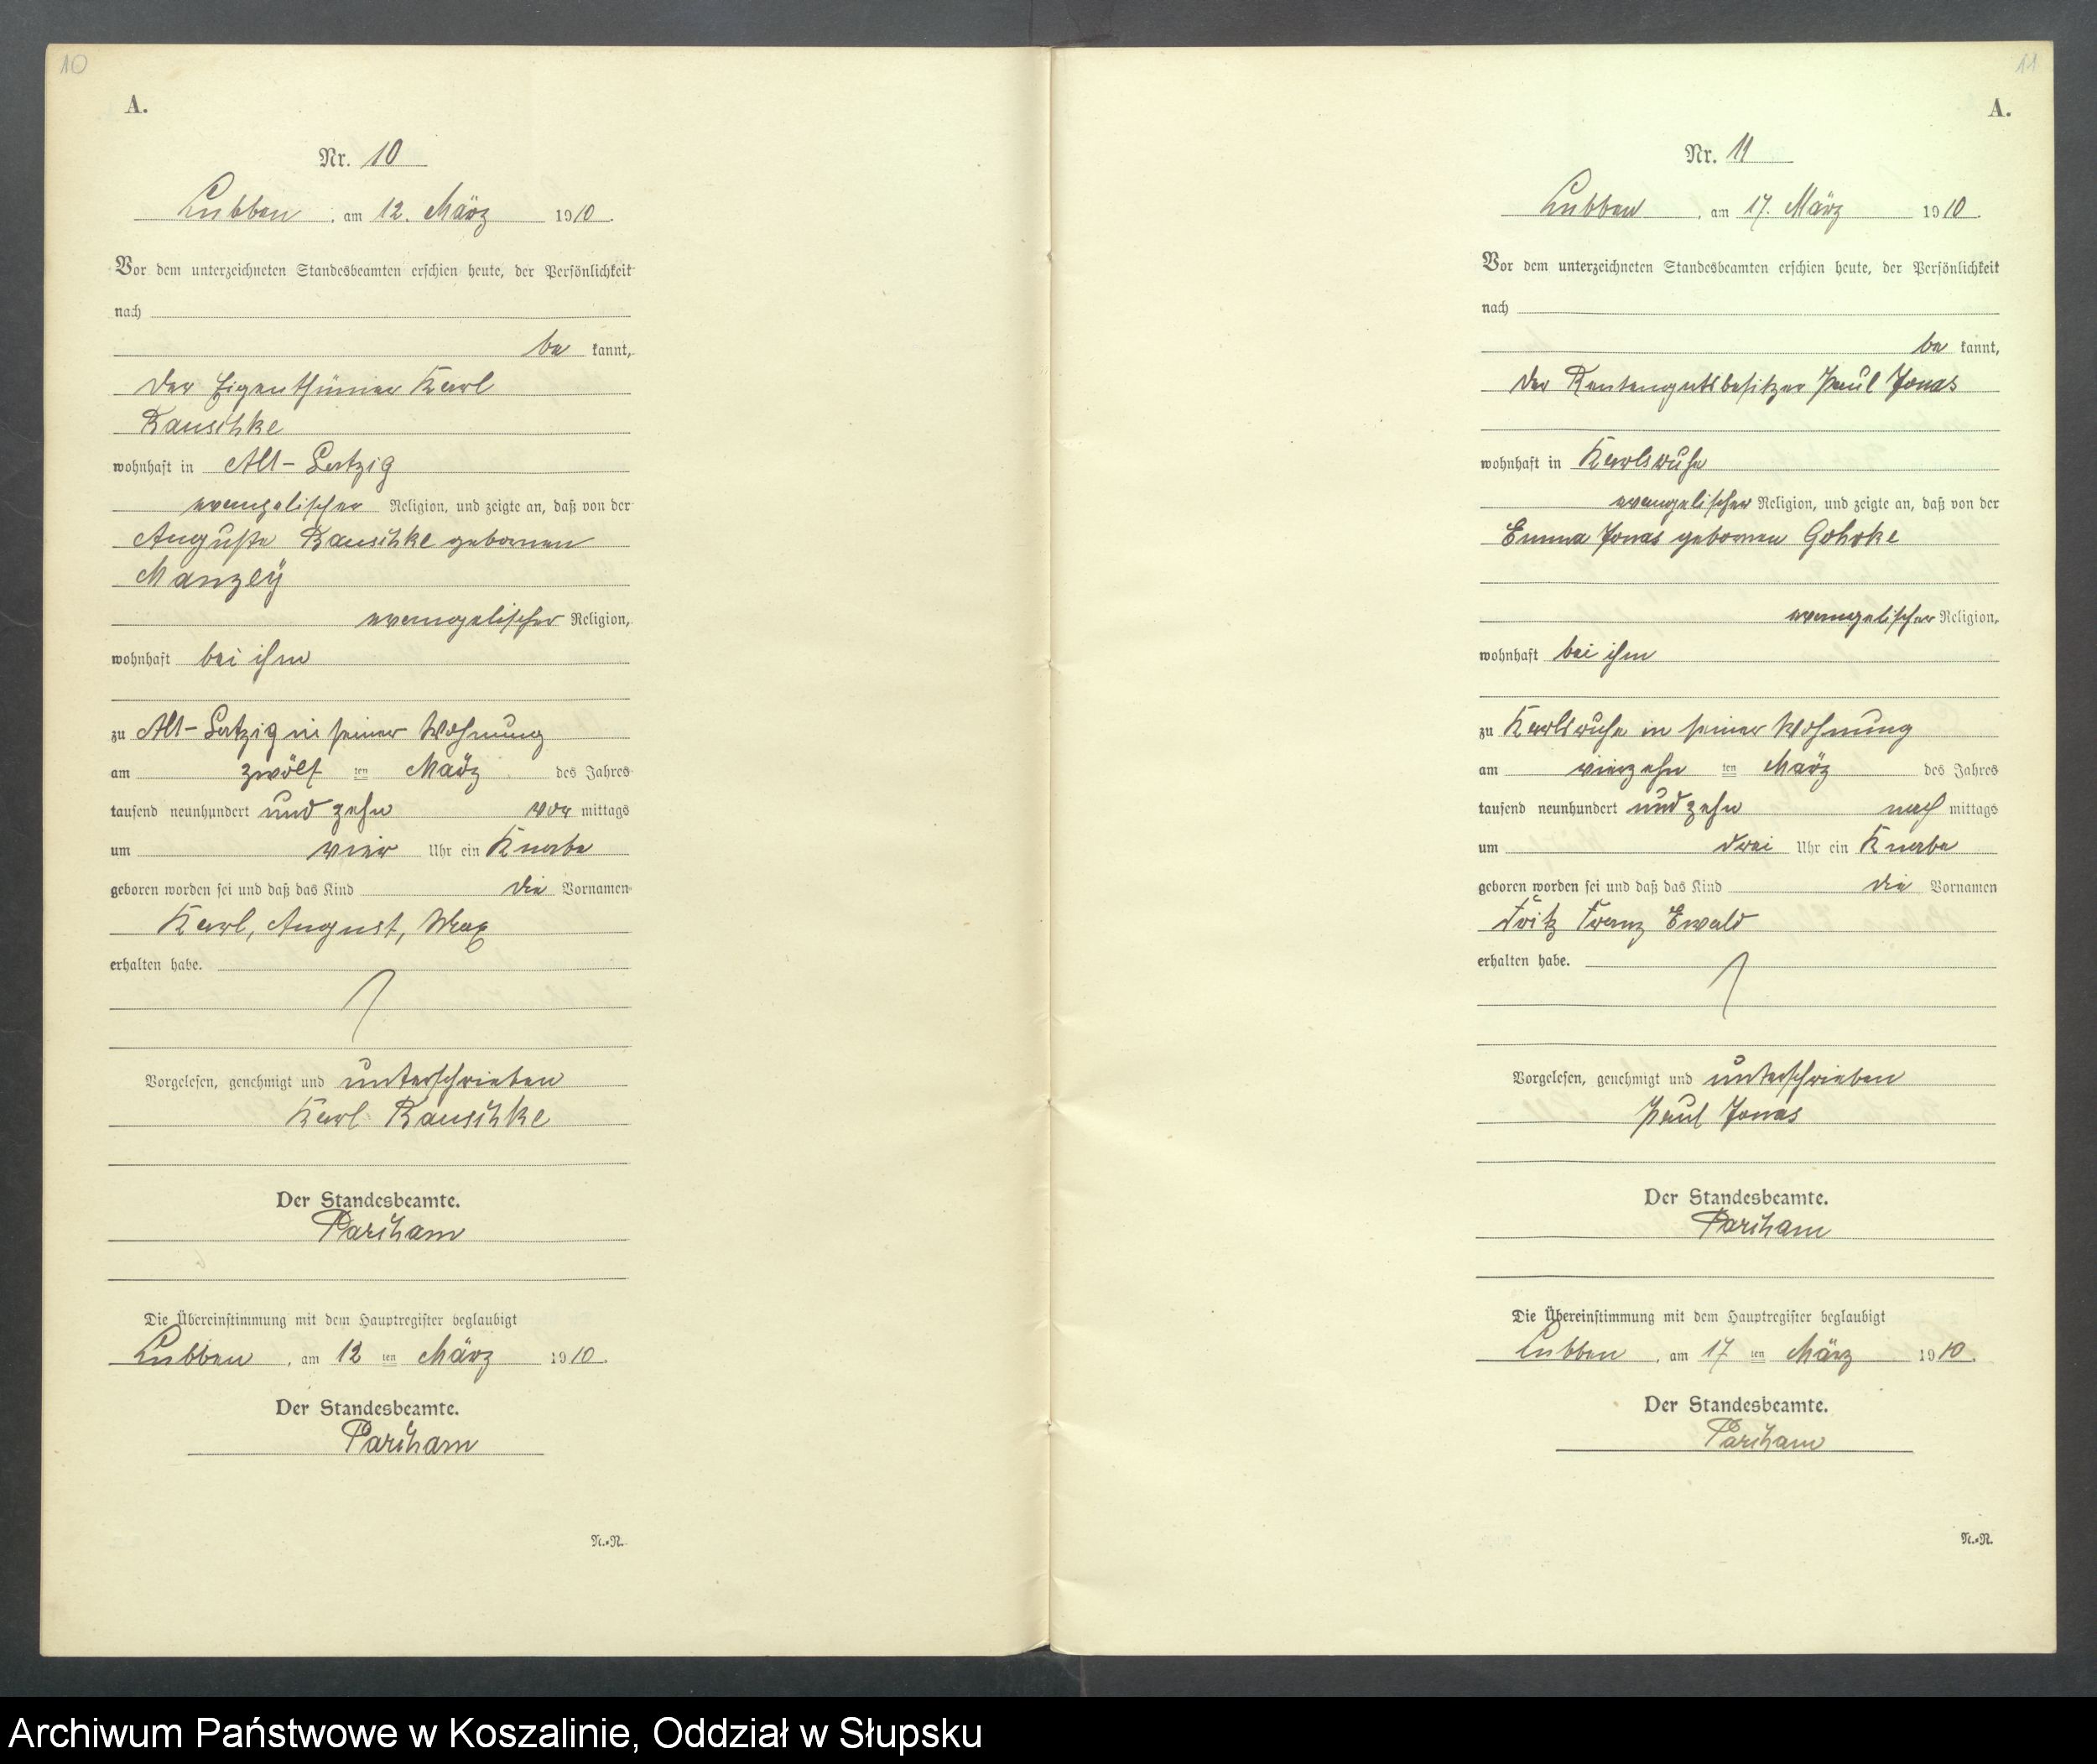 10
A.
Nr. 10
Lubben, am 12. März 1910.
Vor dem unterzeichneten Standesbeamten erschien heute, der Persönlichkeit
nach
be kannt,
der Eigenthümer Karl
Rauschke
wohnhaft in Alt-Latzig
evangelischer Religion, und zeigte an, daß von der
Auguste Rauschke geborenen
Manzeÿ
evangelischer Religion,
wohnhaft bei ihm
zu Alt-Latzig in seiner Wohnung
am zwölf ten März des Jahres
tausend neunhundert und zehn vor mittags
um vier Uhr ein Knabe
geboren worden sei und daß das Kind die Vornamen
Karl, August, Max
erhalten habe.
Vorgelesen, genehmigt und unterschrieben
Karl Rauschke
Der Standesbeamte.
Parcham
Die Übereinstimmung mit dem Hauptregister beglaubigt
Lubben, am 12 ten März 1910.
Der Standesbeamte.
Parcham
N.=N.
11
A.
Nr. 11
Lubben, am 17. März 1910.
Vor dem unterzeichneten Standesbeamten erschien heute, der Persönlichkeit
nach
be kannt,
der Rentengutsbesitzer Paul Jonas
wohnhaft in Karlsruhe
evangelischer Religion, und zeigte an, daß von der
Emma Jonas geborenen Gohrke
evangelischer Religion,
wohnhaft bei ihm
zu Karlsruhe in seiner Wohnung
am vierzehn ten März des Jahres
tausend neunhundert und zehn nach mittags
um drei Uhr ein Knabe
geboren worden sei und daß das Kind die Vornamen
Fritz Franz Ewald
erhalten habe.
Vorgelesen, genehmigt und unterschrieben
Paul Jonas
Der Standesbeamte.
Parcham
Die Übereinstimmung mit dem Hauptregister beglaubigt
Lubben, am 17 ten März 1910.
Der Standesbeamte.
Parcham
N.=N.
Archiwum Państwowe w Koszalinie, Oddział w Słupsku